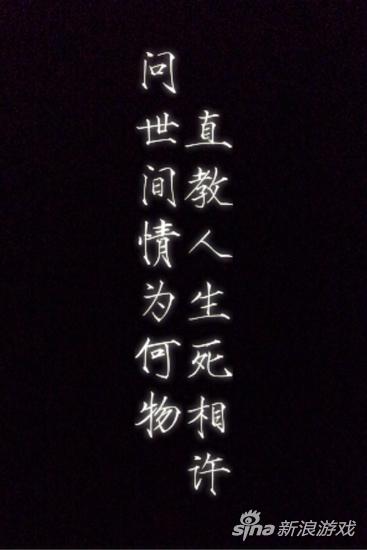 问世间情为何物
直教人生死相许
sina新浪游戏